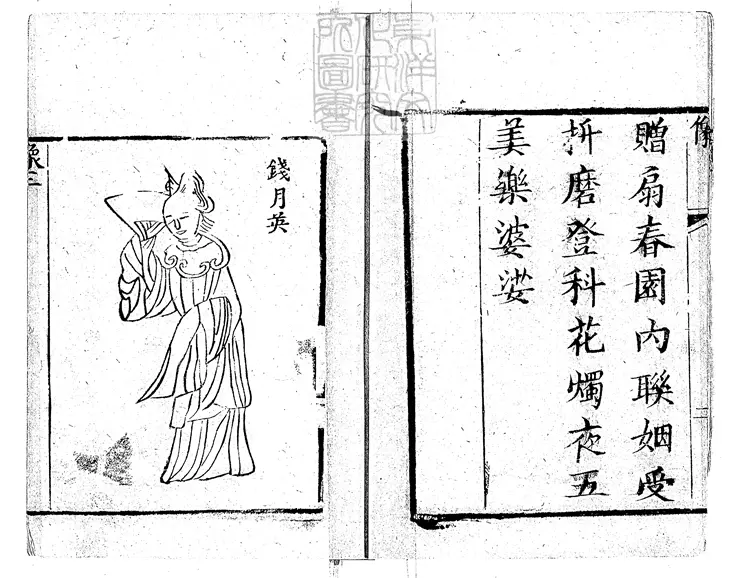 東洋文
化研究
所圖書
像
二
贈扇春園内聯姻受
折磨登科花燭夜五
美樂婆娑
錢月英
像三